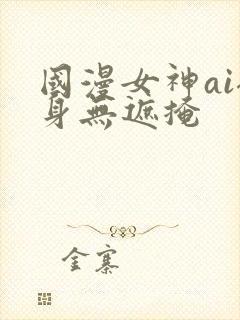 國漫女神ai
身無遮掩
金寨